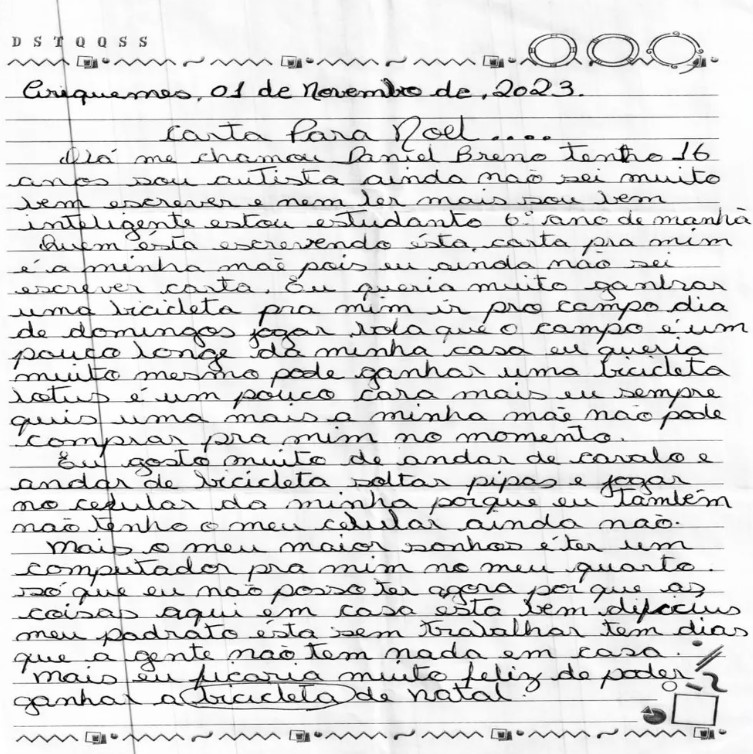 D S T Q Q S S
Ariquemes, 01 de Novembro de, 2023.
Carta Para Noel....
Olá me chamou Daniel Breno tenho 16
anos sou autista ainda não sei muito
bem escrever e nem ler mais sou bem
inteligente estou estudanto 6º ano de manhã
Quem esta escrevendo ésta, carta pra mim
é a minha mãe pois eu ainda não sei
escrever carta, Eu queria muito ganhar
uma bicicleta pra mim ir pro campo dia
de domingos jogar bola que o campo é um
pouco longe da minha casa eu queria
muito mesmo pode ganhar uma bicicleta
lotus é um pouco cara mais eu sempre
quis uma mais a minha mãe não pode
comprar pra mim no momento.
Eu gosto muito de andar de cavalo e
andar de bicicleta soltar pipas e jogar
no celular da minha porque eu também
não tenho o meu celular ainda não.
Mais o meu maior sonhos é ter um
computador pra mim no meu quarto.
só que eu não posso ter agora porque as
coisas aqui em casa esta bem dificius
meu padrato ésta sem trabalhar tem dias
que a gente não tem nada em casa.
Mais eu ficaria muito feliz de poder
ganhar a bicicleta de natal